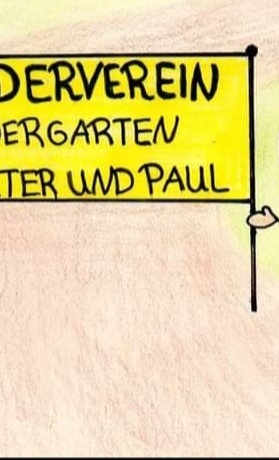 DERVEREIN
DERGARTEN
TER UND PAUL